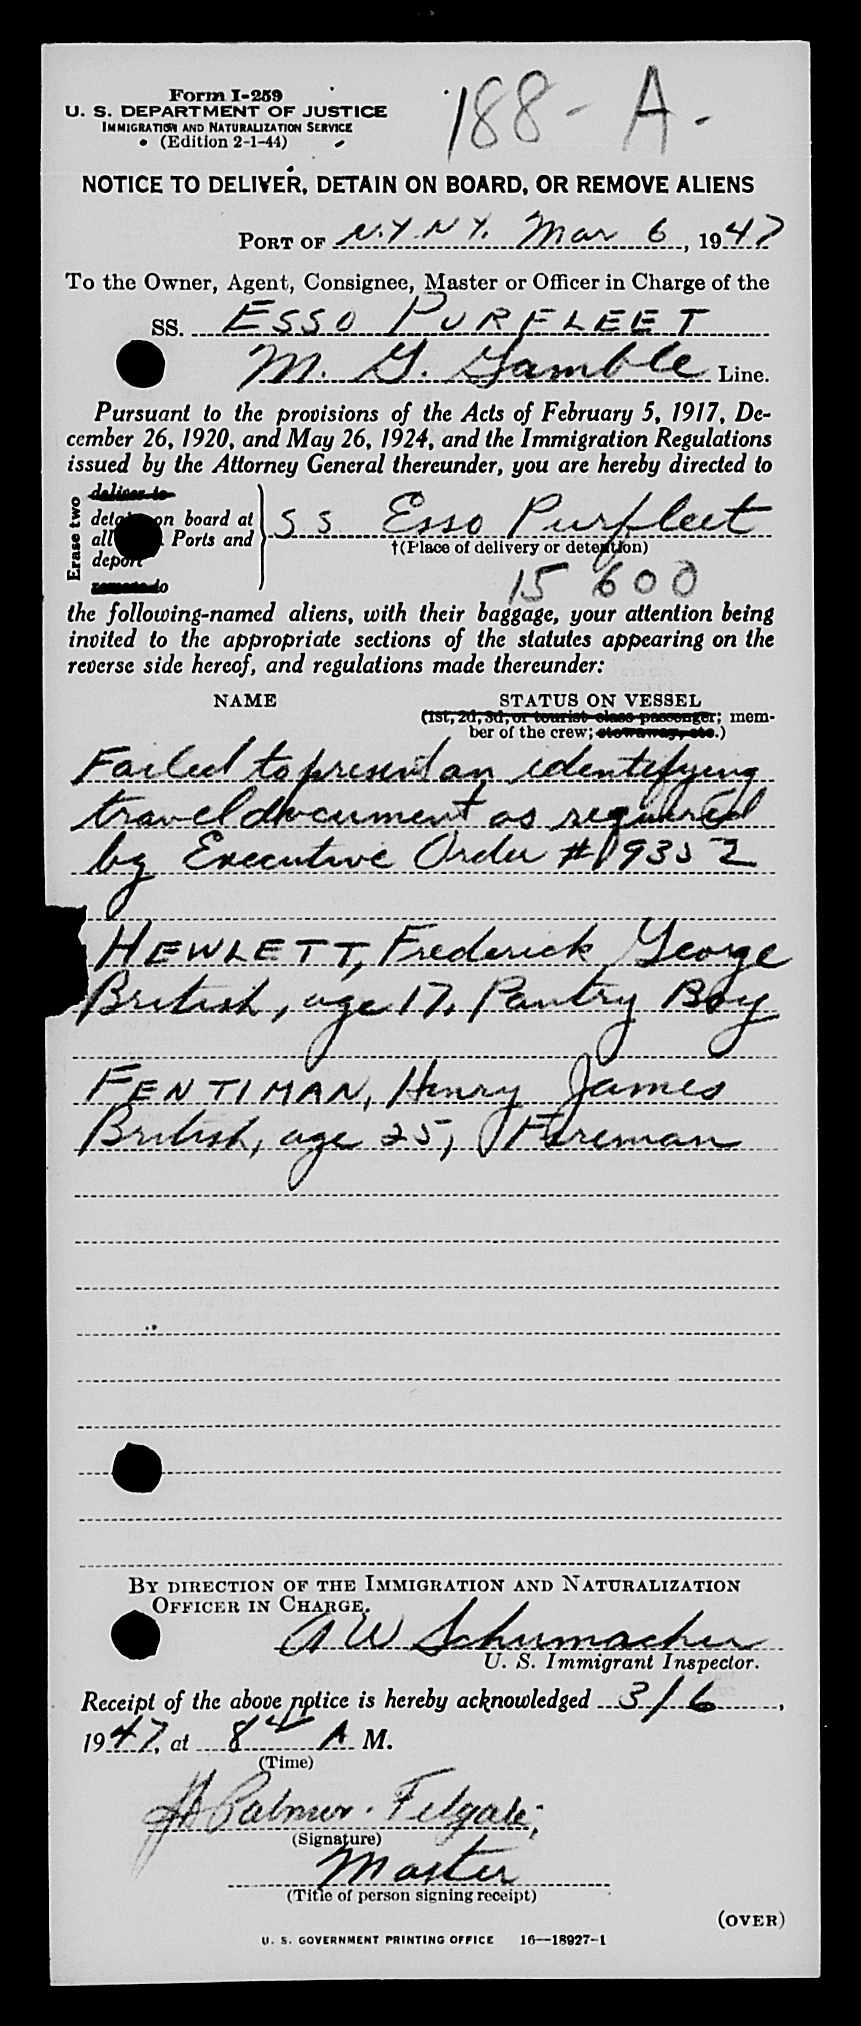 Form I-259
U. S. DEPARTMENT OF JUSTICE
IMMIGRATION AND NATURALIZATION SERVICE
(Edition 2-1-44)
188- A.
NOTICE TO DELIVER, DETAIN ON BOARD, OR REMOVE ALIENS
PORT OF N.Y. N Y. Mar 6, 1947
To the Owner, Agent, Consignee, Master or Officer in Charge of the
SS. ESSO PURFLEET
M. G. Gamble Line.
Pursuant to the provisions of the Acts of February 5, 1917, De-
cember 26, 1920, and May 26, 1924, and the Immigration Regulations
issued by the Attorney General thereunder, you are hereby directed to
Erase two
deliver to
detain on board at
all Ports and
deport
SS Esso Purfleet
†(Place of delivery or detention)
15600
the following-named aliens, with their baggage, your attention being
invited to the appropriate sections of the statutes appearing on the
reverse side hereof, and regulations made thereunder:
NAME STATUS ON VESSEL
(1st, 2d, 3d, or tourist class passenger; mem-
ber of the crew; stowaway, etc.)
Failed to present an identifying
travel document as required
by Executive Order # 9352
HEWLETT, Frederick George
British, age 17, Pantry Boy
FENTIMAN, Henry James
British, age 25, Fireman
BY DIRECTION OF THE IMMIGRATION AND NATURALIZATION
OFFICER IN CHARGE.
A W Schumacher
U. S. Immigrant Inspector.
Receipt of the above notice is hereby acknowledged 3/6,
1947, at 8 A M.
(Time)
Palmer. Felgate,
(Signature)
Master
(Title of person signing receipt)
(OVER)
U. S. GOVERNMENT PRINTING OFFICE 16—18927-1